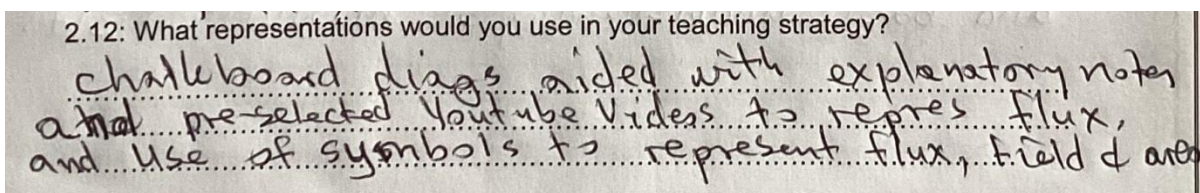 2.12: What representations would you use in your teaching strategy?
chalkboard diags aided with explanatory notes
and pre-selected Youtube Videos to repres flux,
and use of symbols to represent flux, field & area